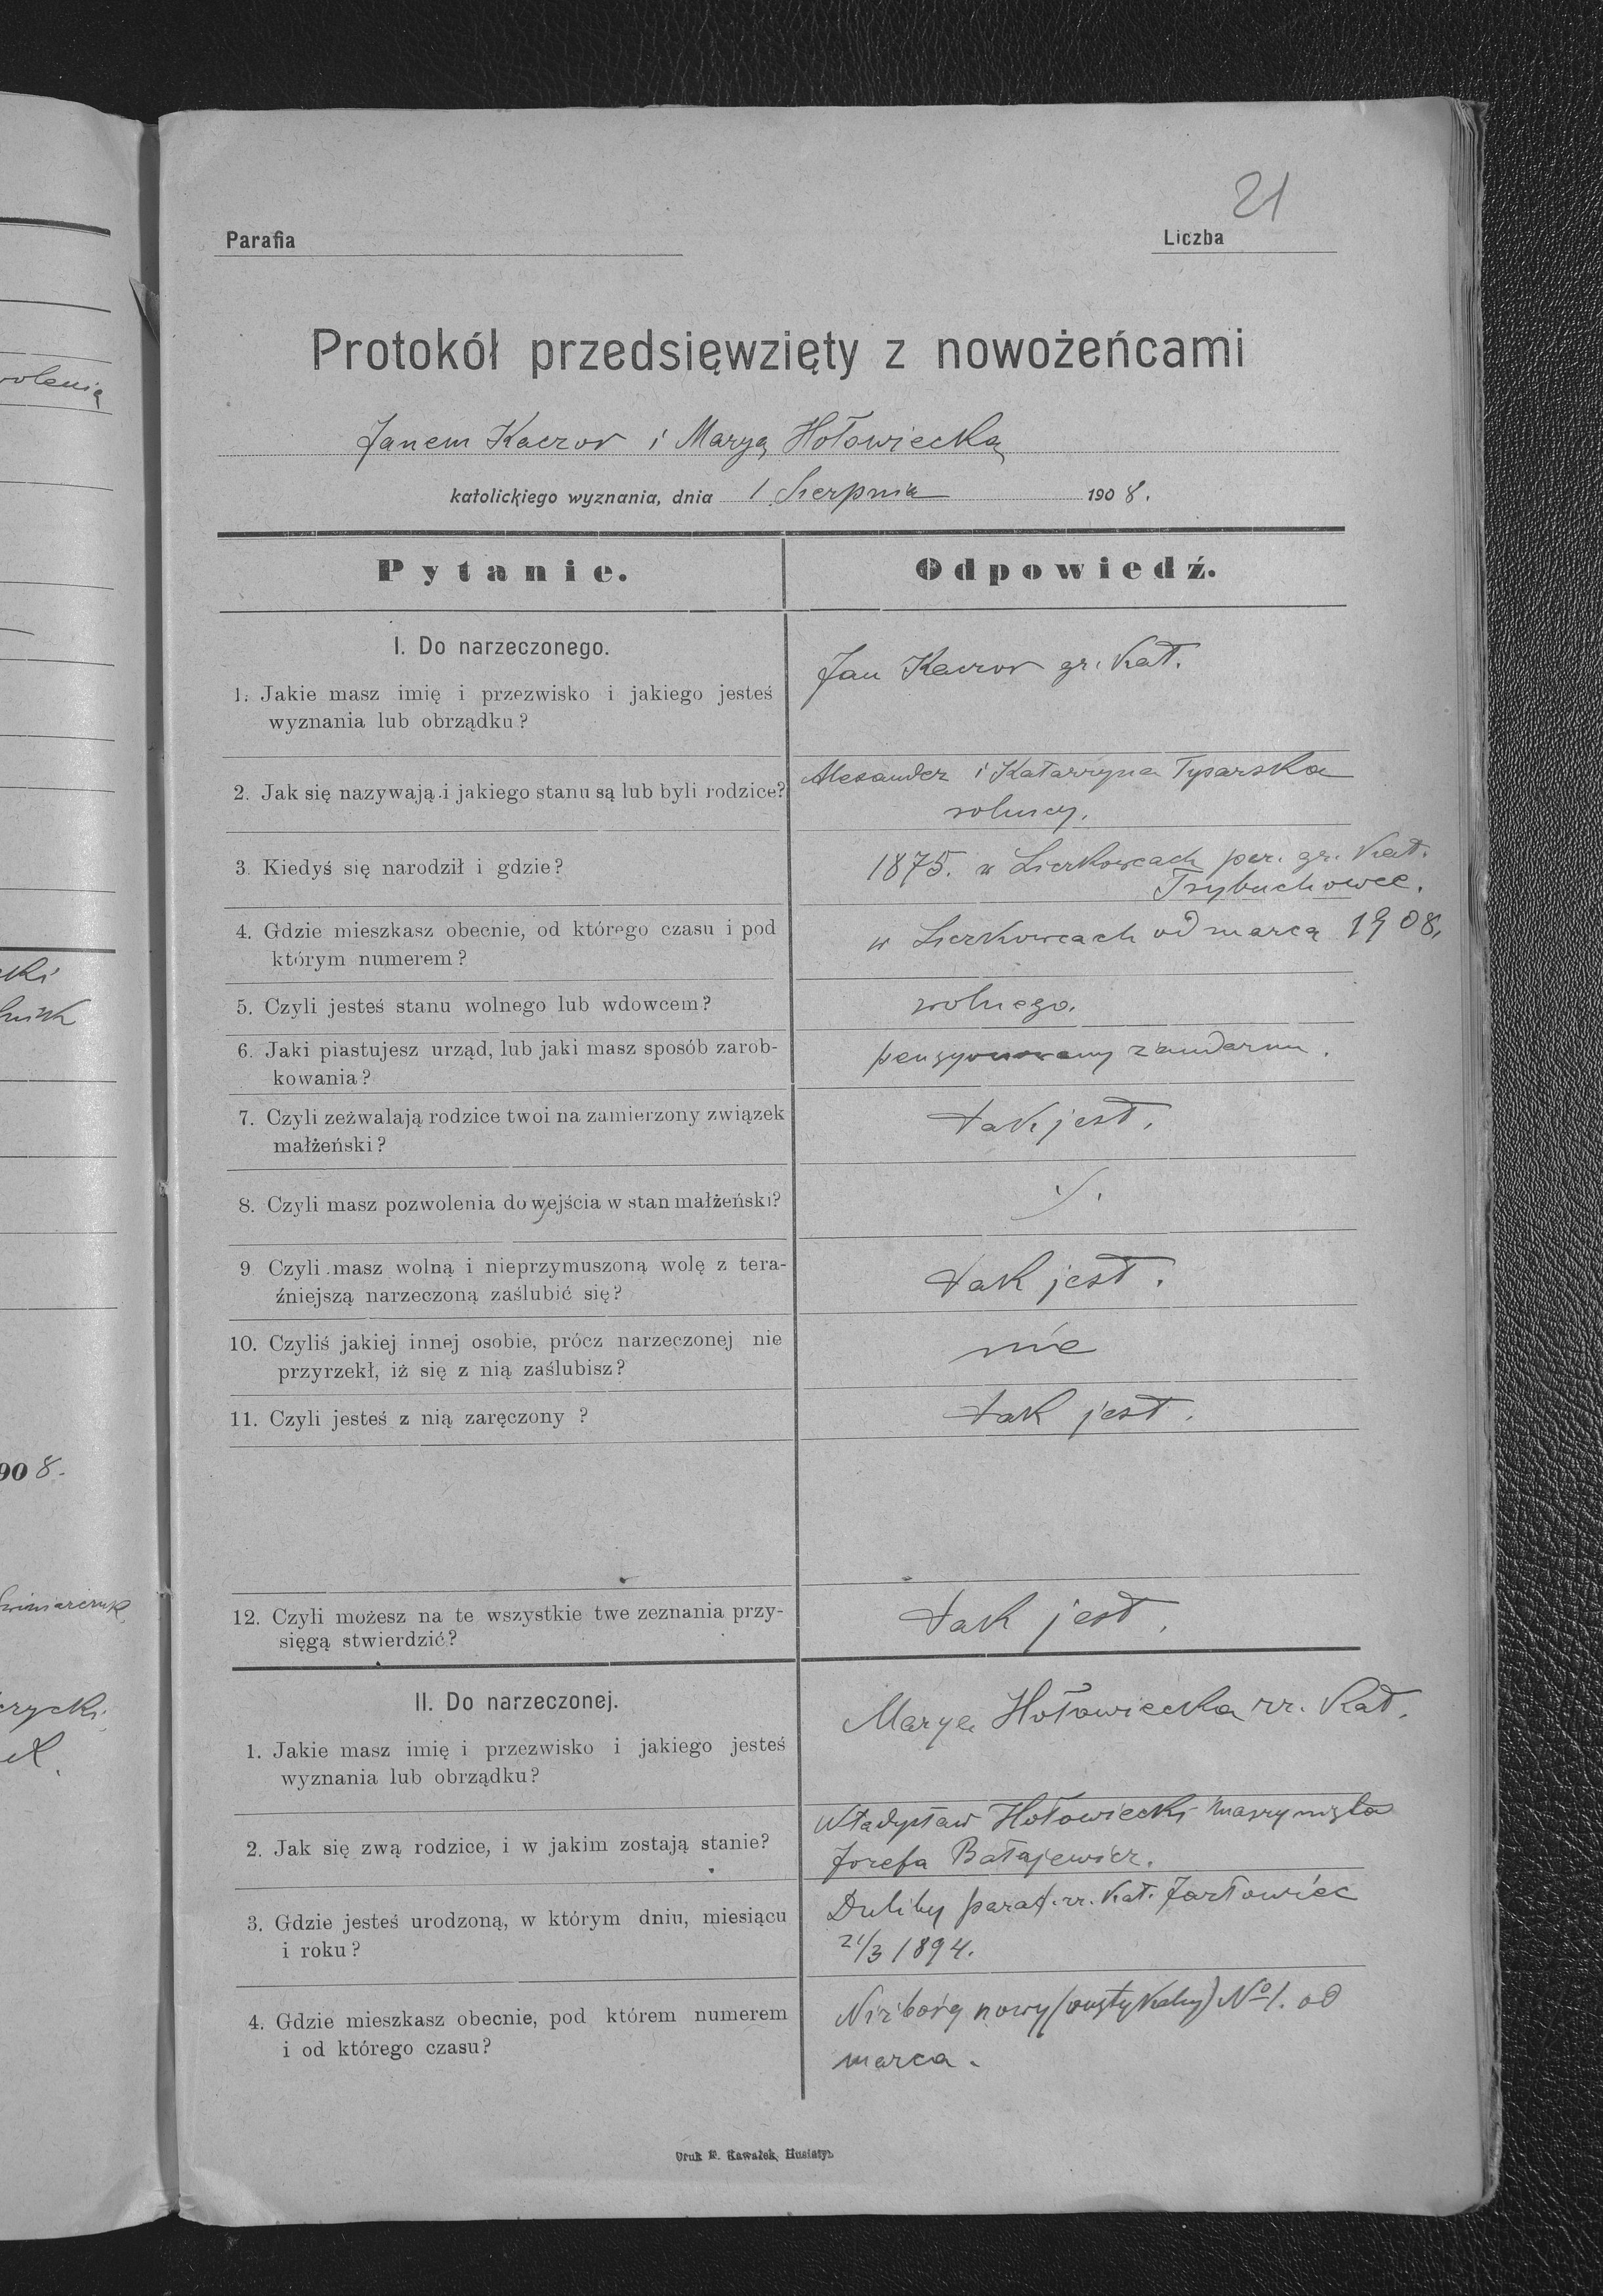 21
Parafia
Liczba
Protokół przedsięwzięty z nowożeńcami
Janem Kaczor i Maryą Hołowiecką
katolickiego wyznania, dnia 1 Sierpnia 1908.
Pytanie.
Odpowiedź.
I. Do narzeczonego.
1. Jakie masz imię i przezwisko i jakiego jesteś
wyznania lub obrządku?
Jan Kaczor gr. kat.
2. Jak się nazywają i jakiego stanu są lub byli rodzice?
Alexander i Katarzyna Tysarska
rolnicy.
3. Kiedyś się narodził i gdzie?
1875. w Sierkowcach par. gr. kat.
Trybuchowce.
4. Gdzie mieszkasz obecnie, od którego czasu i pod
którym numerem?
w Sierkowcach od marca 1908.
5. Czyli jesteś stanu wolnego lub wdowcem?
wolnego.
6. Jaki piastujesz urząd, lub jaki masz sposób zarob-
kowania?
pensyonowany żandarm.
7. Czyli zeżwalają rodzice twoi na zamierzony związek
małżeński?
tak jest.
8. Czyli masz pozwolenia do wejścia w stan małżeński?
./.
9. Czyli masz wolną i nieprzymuszoną wolę z tera-
źniejszą narzeczoną zaślubić się?
tak jest.
10. Czyliś jakiej innej osobie, prócz narzeczonej nie
przyrzekł, iż się z nią zaślubisz?
nie
11. Czyli jesteś z nią zaręczony ?
tak jest.
12. Czyli możesz na te wszystkie twe zeznania przy-
sięgą stwierdzić?
tak jest.
II. Do narzeczonej.
1. Jakie masz imię i przezwisko i jakiego jesteś
wyznania lub obrządku?
Marya Hołowiecka rz. kat.
2. Jak się zwą rodzice, i w jakim zostają stanie?
Władysław Hołowiecki maszynista
Józefa Bałajewicz.
3. Gdzie jesteś urodzoną, w którym dniu, miesiącu
i roku?
Duliby paraf. rz. kat. Jazłowiec
21/3 1894.
4. Gdzie mieszkasz obecnie, pod którem numerem
i od którego czasu?
Niżborg nowy No 1. od
marca.
Druk F. Kawałek, Husiatyn
908.